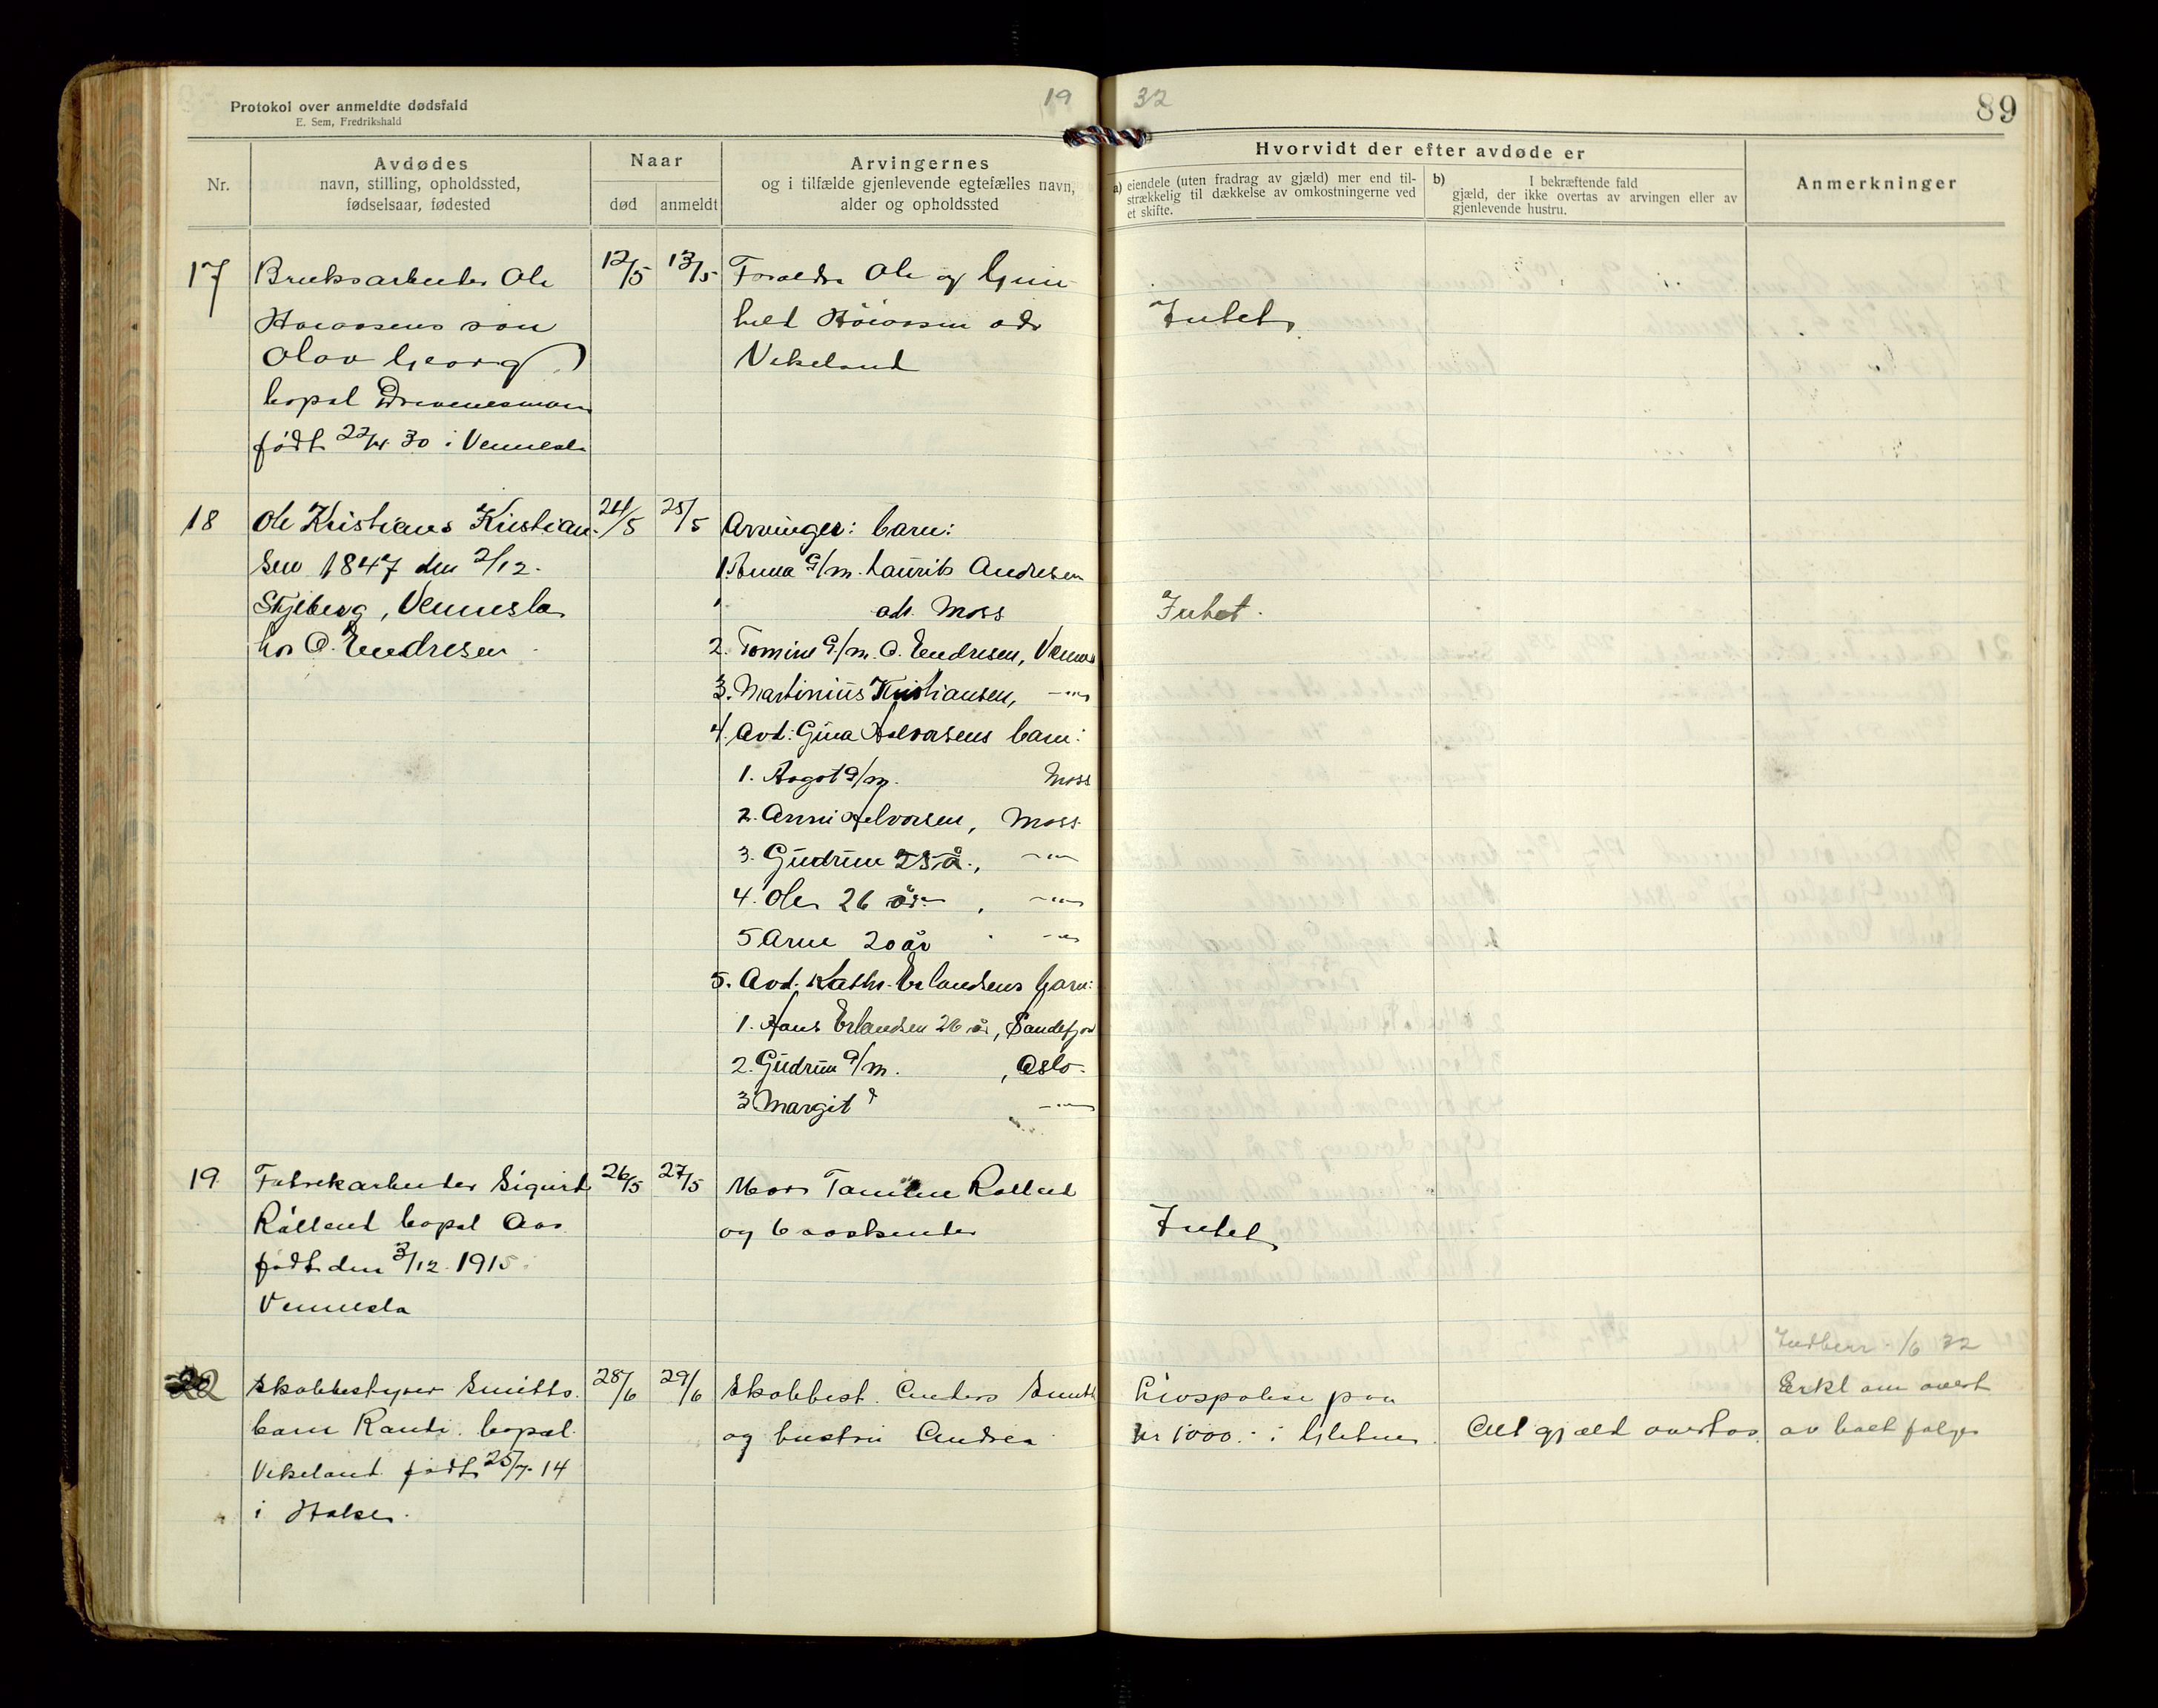 Protokol over anmeldte dødsfald
E. Sem, Fredrikshald
19 32
89
Nr.
Avdødes
navn, stilling, opholdssted,
fødselsaar, fødested
Naar
død
anmeldt
Arvingernes
og i tilfælde gjenlevende egtefælles navn,
alder og opholdssted
Hvorvidt der efter avdøde er
a) eiendele (uten fradrag av gjæld) mer end til-
strækkelig til dækkelse av omkostningerne ved
et skifte.
b) I bekræftende fald
gjæld, der ikke overtas av arvingen eller av
gjenlevende hustru.
Anmerkninger
17
Bruksarbeider Ole
søn
Olav Georg
bopæl
født 22/4 30 i Vennesla
12/5
13/5
Foreldre Ole og Gun
hild adr
Vikeland
Intet
18
Ole Kristians Kristian-
sen 1847 den 2/12.
Stjeberg, Vennesla
hos O. Endresen
24/5
25/5
Arvinger: barn:
1. Anna G/m. Laurits Andresen
adr. Moss
2. Tomine G/m. O. Endresen, Vennes
3. Martinius Kristiansen, —"—
4. Avd: Gina Halvorsens barn:
1. Aagot G/m. Moss
2. Anni Halvorsen, Moss
3. Gudrun 25 å., —"—
4. Ole 26 år , —"—
5 Arne 20 år —"—
5. Avd. Kathr. Erlandsens barn:
1. Hans Erlandsen 26 år, Sandefjor
2. Gudrun G/m. , Oslo.
3 Margit ? —"—
Intet.
19
Fabrikarbeider Sigurd
Rølland bopæl Aas
født den 3/12 1915
Vennesla
26/5
27/5
Mor Tomine Rølland
og 6 søskende
Intet
20
Skolebestyrer Smiths
barn Randi. bopæl
Vikeland født 25/7 14
i Halse.
28/6
29/6
Skolebest. Anders Smith
og hustru Andrea
Livspolise paa
kr 1000.- i
Alt gjæld overtas
Indberr 1/6 32
Erkl om overt
av boet følger